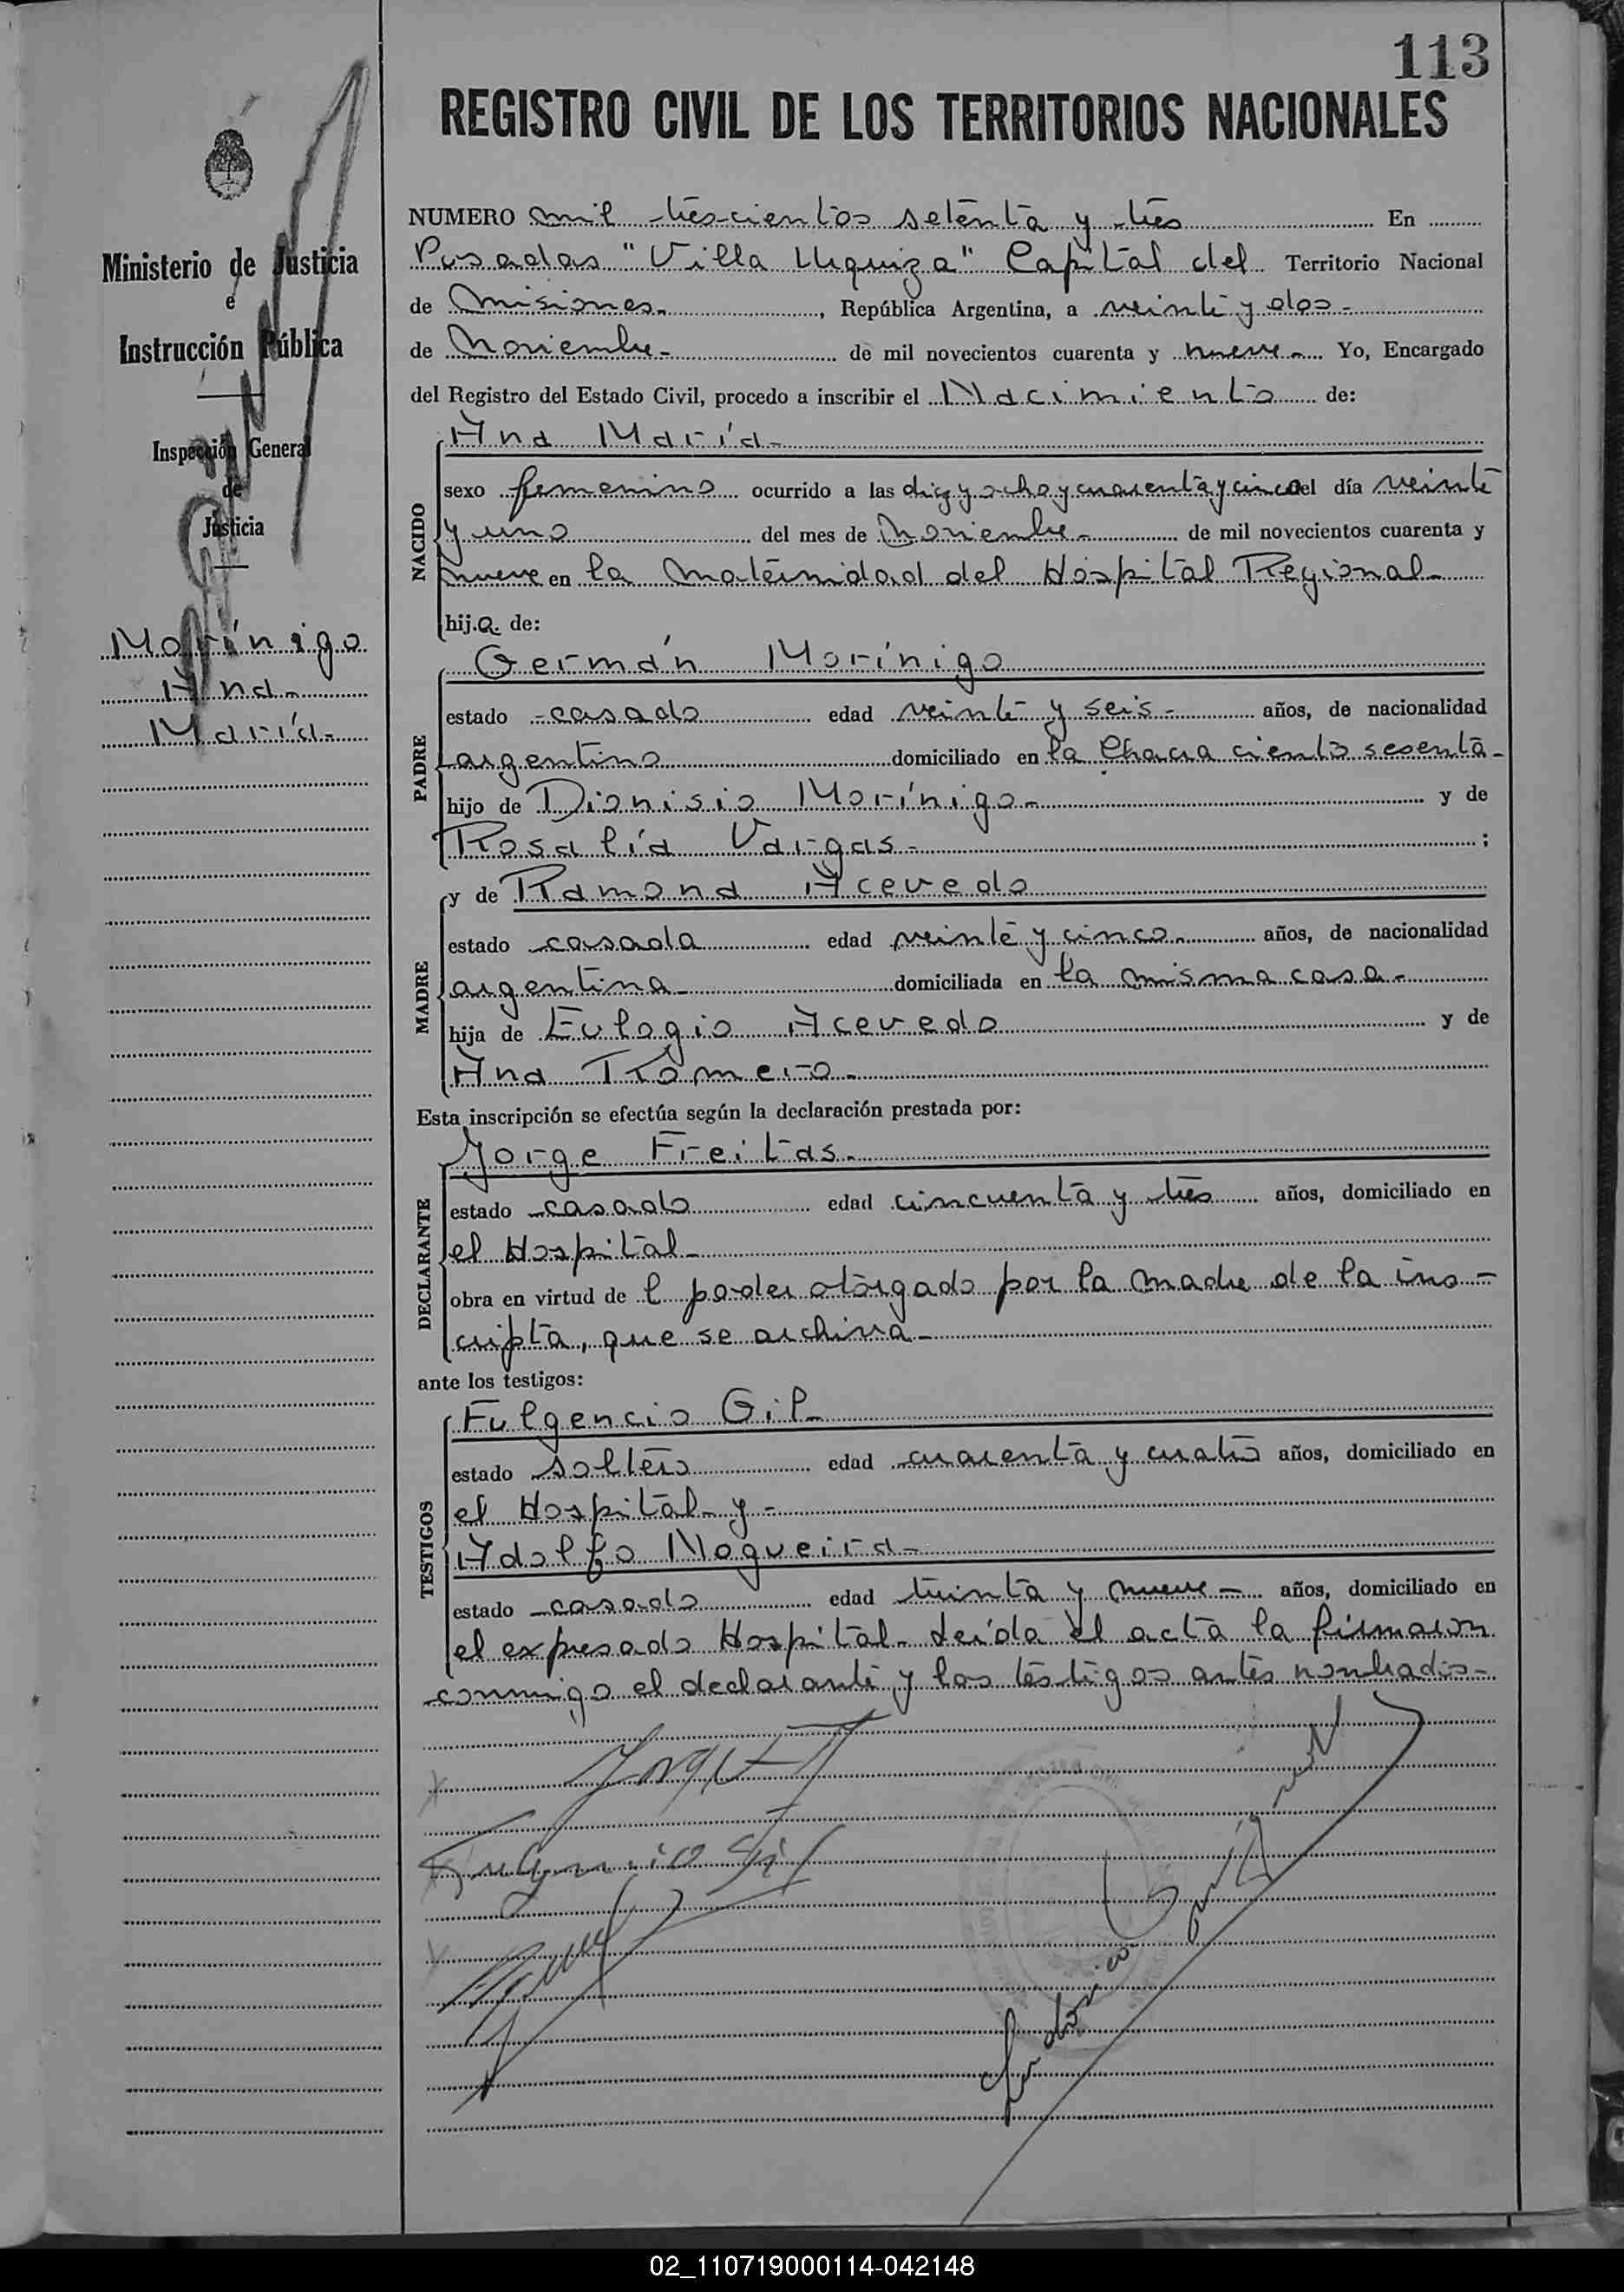 113
REGISTRO CIVIL DE LOS TERRITORIOS NACIONALES
Ministerio de Justicia
e
Instrucción Pública
Inspección General
de
Justicia
Morínigo
Ana
María-
NUMERO mil trescientos setenta y tres En
Posadas "Villa Urquiza" Capital del Territorio Nacional
de Misiones-, República Argentina, a veinte y dos-
de Noviembre- de mil novecientos cuarenta y nueve- Yo, Encargado
del Registro del Estado Civil, procedo a inscribir el Nacimiento de:
Ana María-
NACIDO
sexo femenino ocurrido a las diez y ocho y cuarenta y cinco del día veinte
y uno del mes de Noviembre- de mil novecientos cuarenta y
nueve en la Maternidad del Hospital Regional-
hija de:
Germán Morínigo
PADRE
estado casado edad veinte y seis- años, de nacionalidad
argentino domiciliado en la Chacra ciento sesenta-
hijo de Dionisio Morínigo- y de
Rosalía Vargas- ;
y de Ramona Acevedo
MADRE
estado casada edad veinte y cinco- años, de nacionalidad
argentina- domiciliada en la misma casa-
hija de Eulogio Acevedo y de
Ana Romero-
Esta inscripción se efectúa según la declaración prestada por:
Jorge Freitas-
DECLARANTE
estado casado edad cincuenta y tres años, domiciliado en
el Hospital-
obra en virtud de l poder otorgado por la madre de la ins-
cripta, que se archiva-
ante los testigos:
Fulgencio Gil-
TESTIGOS
estado soltero edad cuarenta y cuatro años, domiciliado en
el Hospital- y-
Adolfo Nogueira-
estado casado edad treinta y nueve- años, domiciliado en
el expresado Hospital- Leída el acta la firmaron
conmigo el declarante y los testigos antes nombrados-
Fulgencio Gil
02_110719000114-042148